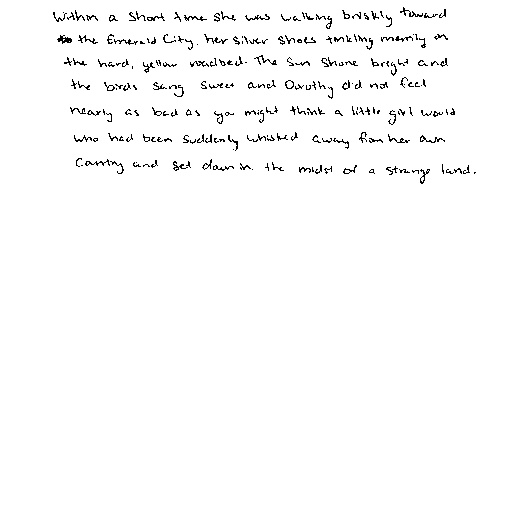 Within a short time she was walking briskly toward
the Emerald City, her Silver Shoes tinkling merrily on
the hard, yellow roadbed. The sun shone bright and
the birds sang sweet and Dorothy did not feel
nearly as bad as you might think a little girl would
who had been suddenly whisked away from her own
country and set down in the midst of a strange land.